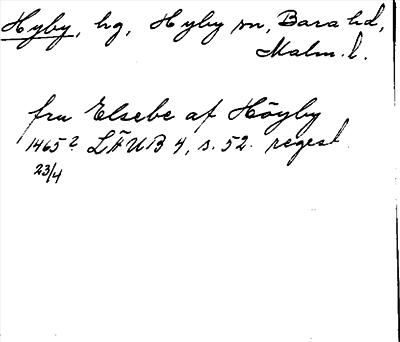 Hyby, hg, Hyby sn, Bara hd,
Malm. l.
fru Elsebe af Höyby
1465? LÄUB 4, s. 52. regest
23/4